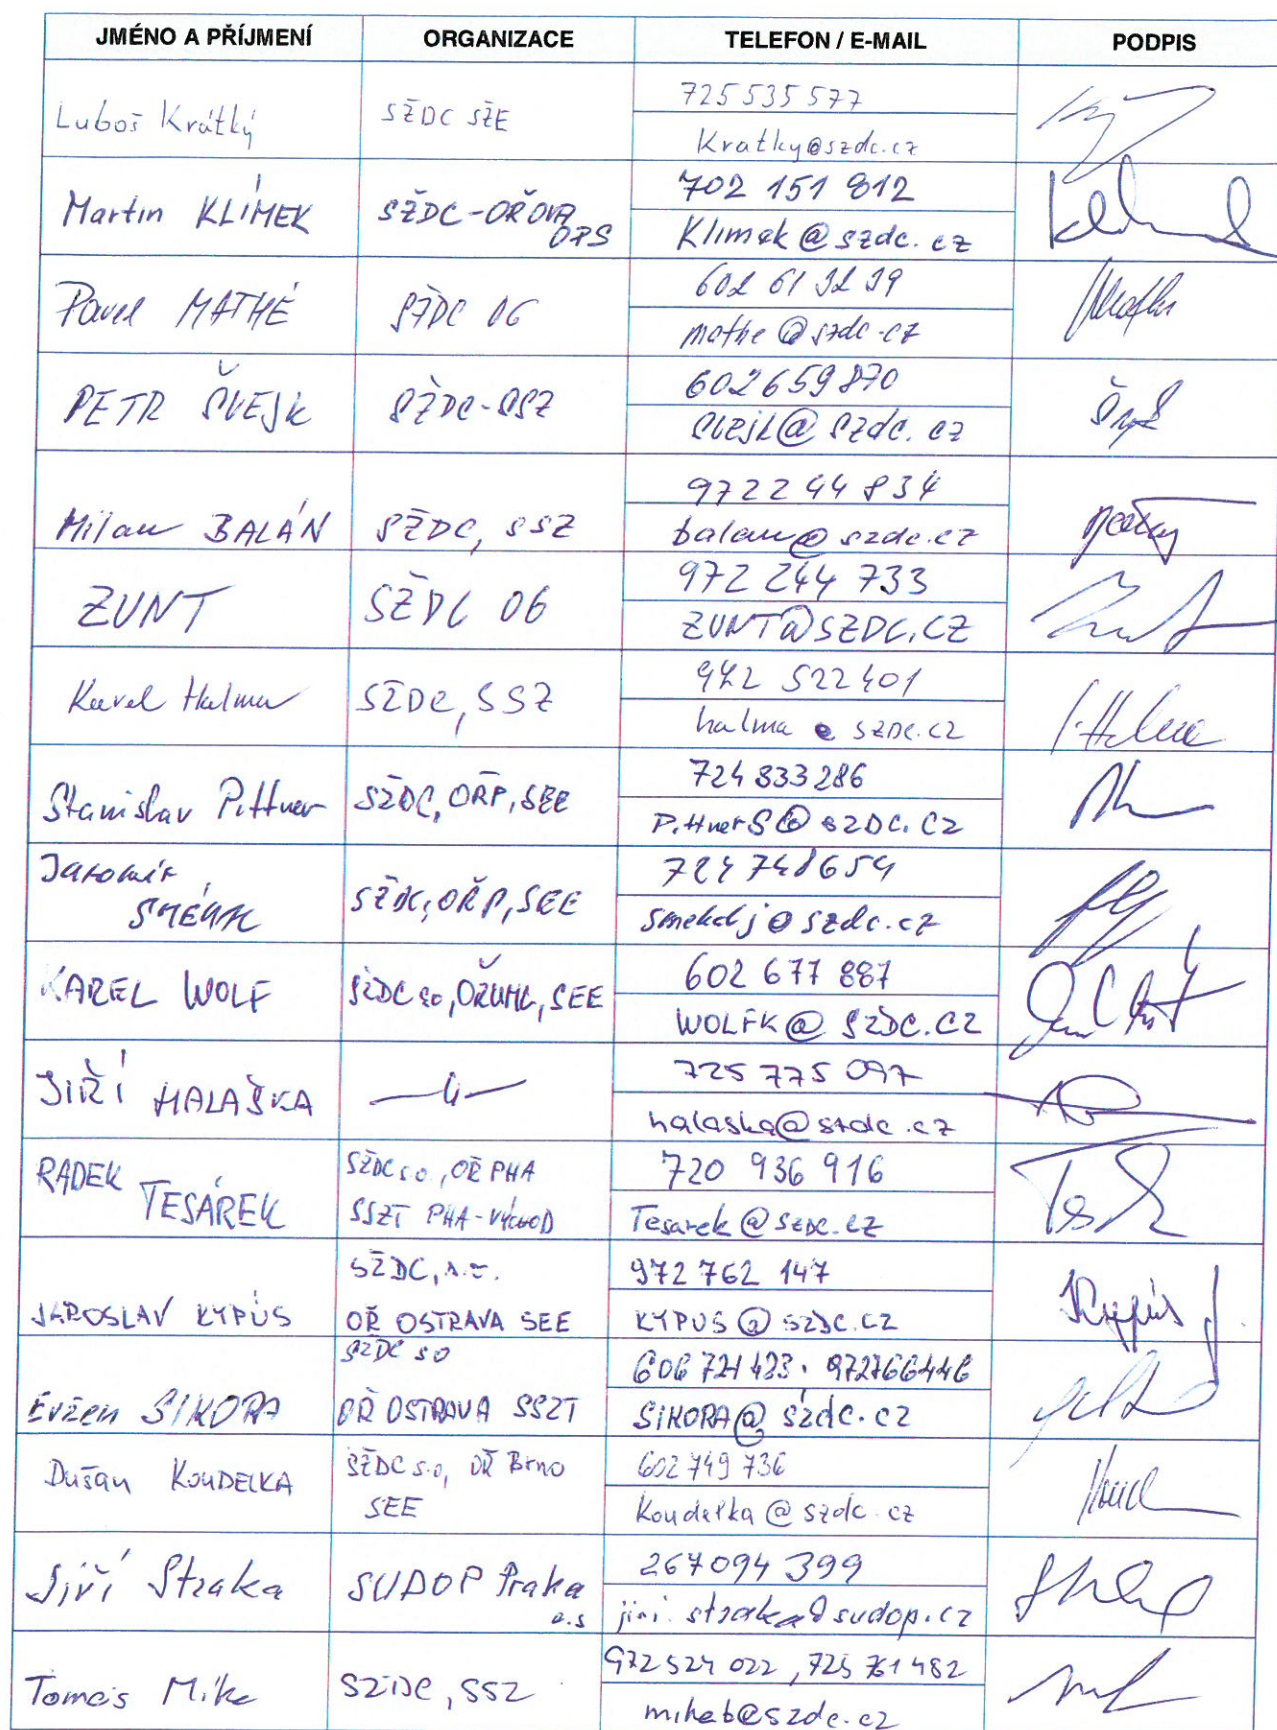 JMÉNO A PŘÍJMENÍ ORGANIZACE TELEFON / E-MAIL PODPIS
Luboš Krátký SŽDC SŽE 725 535 577
Kratky@szdc.cz
Martin KLIMEK SŽDC-OŘOVA OPS 702 151 812
Klimek@szdc.cz
Pavel MATHÉ SŽDC 06 602 61 32 39
mathe@szdc.cz
PETR ŠVEJK SŽDC-SSZ 602659870
svejk@szdc.cz
Milan BALÁN SŽDC, SSZ 972244834
balan@szdc.cz
ZUNT SŽDC 06 972 244 733
ZUNT@SZDC.CZ
Karel Halma SŽDC, SSZ 972 522401
halma@szdc.cz
Stanislav Pittner SŽDC, OŘP, SEE 724 833 286
PittnerS@SZDC.CZ
Jaromír SŽDC, OŘP, SEE 724 748654
szdc.cz
KAREL WOLF SŽDC so, OŘUHL, SEE 602 677 887
WOLFK@SZDC.CZ
JIŘÍ HALAŠKA —〃— 725 775 097
halaska@szdc.cz
RADEK TESÁREK SŽDC s.o., OŘ PHA 720 936 916
SSZT PHA-VÝCHOD Tesarek@szdc.cz
SŽDC, s.o. 972 762 147
JAROSLAV KYPÚS OŘ OSTRAVA SEE KYPUS@SZDC.CZ
SŽDC so 606 721 423. 972766446
Evžen SIKORA OŘ OSTRAVA SSZT SIKORA@szdc.cz
Dušan KOUDELKA SŽDC s.o, OŘ Brno 602 749 736
SEE Koudelka@szdc.cz
Jiří Straka SUDOP Praha a.s 267094 399
jiri.straka@sudop.cz
Tomáš Mika SŽDC, SSZ 972 524 022, 725 761 482
szdc.cz